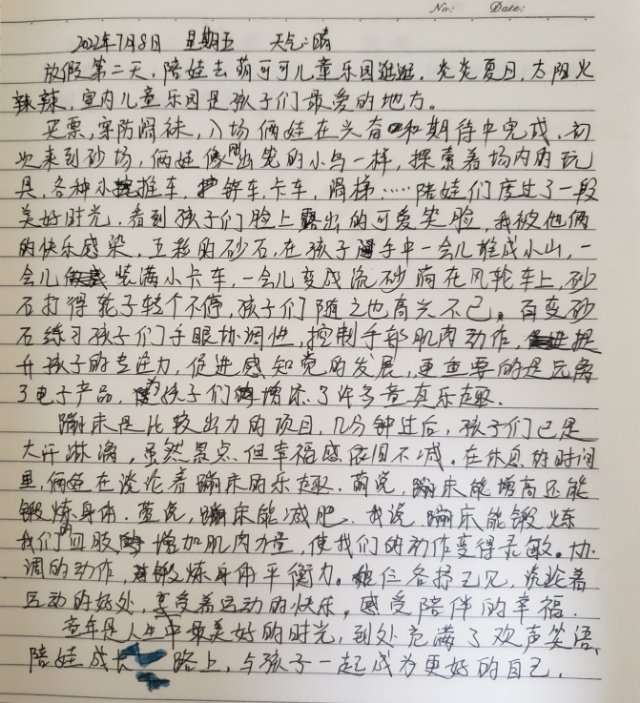 No: Date:
2022年7月8日 星期五 天气:晴
放假第二天,陪娃去萌可可儿童乐园逛逛。炎炎夏日,太阳火
辣辣,室内儿童乐园是孩子们最爱的地方。
买票,穿防滑袜,入场俩娃在兴奋和期待中完成。初
次来到砂场,俩娃像出笼的小鸟一样,探索着场内的玩
具,各种小推车,铲车,卡车,滑梯……陪娃们度过了一段
美好时光,看到孩子们脸上露出的可爱笑脸,我被他俩
的快乐感染。五彩的砂石,在孩子手中一会儿堆成小山,一
会儿装满小卡车,一会儿变成流砂淌在风轮车上,砂
石打得轮子转个不停,孩子们随之也高兴不已。百变砂
石练习孩子们手眼协调性,控制手部肌肉动作,提
升孩子的专注力,促进感知觉的发展,更重要的是远离
了电子产品,为孩子们增添了许多童真乐趣。
蹦床是比较出力的项目,几分钟过后,孩子们已是
大汗淋漓,虽然累点但幸福感依旧不减。在休息的时间
里,俩娃在谈论着蹦床的乐趣。萌说,蹦床能增高还能
锻炼身体。萱说,蹦床能减肥。我说,蹦床能锻炼
我们的四肢增加肌肉力量,使我们的动作变得灵敏。协
调的动作,锻炼身体平衡力。仨各抒己见,谈论着
运动的好处,享受着运动的快乐,感受陪伴的幸福。
童年是人生中最美好的时光,到处充满了欢声笑语,
陪娃成长路上,与孩子一起成为更好的自己。